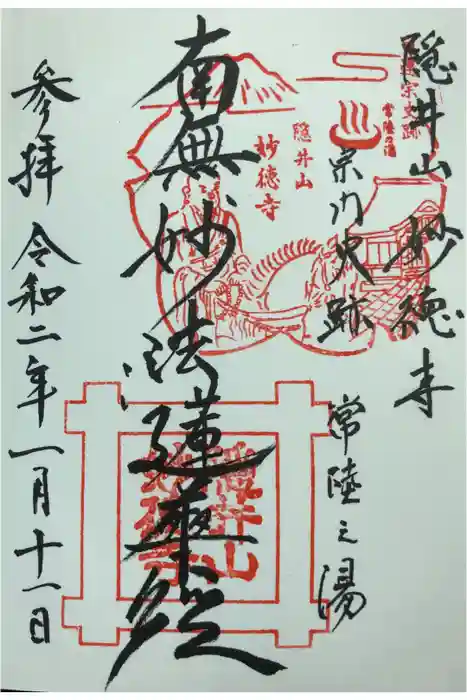 隠井山 妙徳寺
宗門史跡
常陸之湯
南無妙法蓮華経
参拝 令和二年一月十一日
宗史跡
常陸の湯
隠井山
妙徳寺
隠井山
妙徳寺